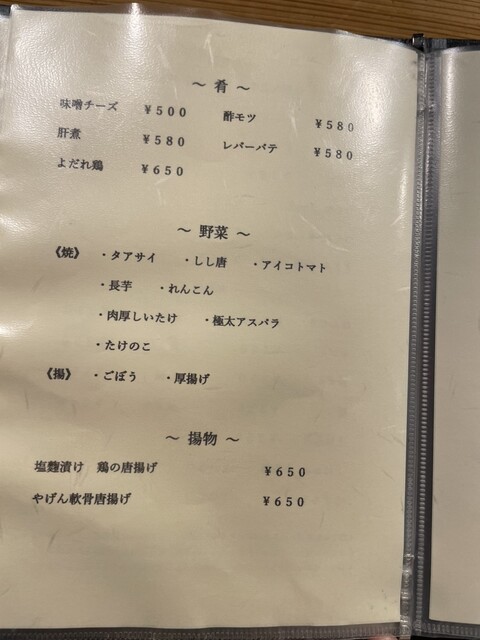 ～ 肴 ～
味噌チーズ ￥５００ 酢モツ ￥５８０
肝煮 ￥５８０ レバーパテ ￥５８０
よだれ鶏 ￥６５０
～ 野菜 ～
《焼》 ・タアサイ ・しし唐 ・アイコトマト
・長芋 ・れんこん
・肉厚しいたけ ・極太アスパラ
・たけのこ
《揚》 ・ごぼう ・厚揚げ
～ 揚物 ～
塩麴漬け 鶏の唐揚げ ￥６５０
やげん軟骨唐揚げ ￥６５０